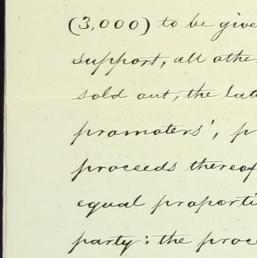 (3,000) to be give
support, all othe
sold out, the lat
promoters', p
proceeds thereof
equal proporti
party: the proc